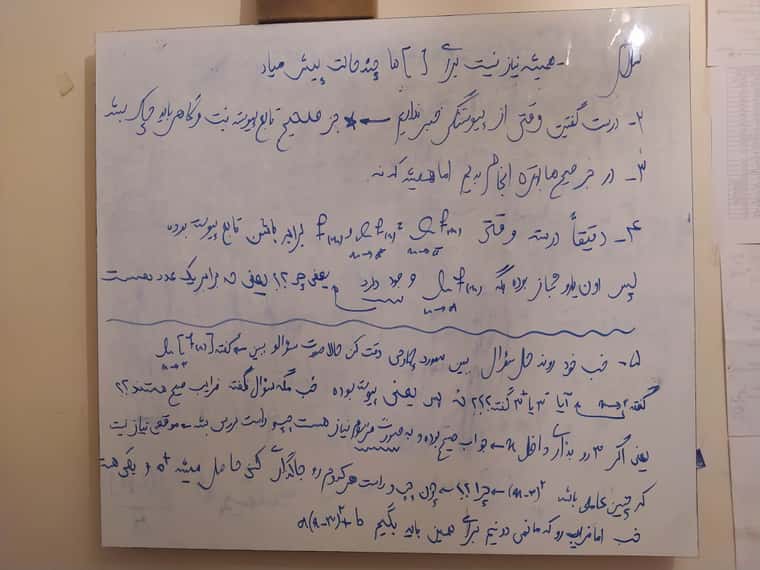 همیشه نیاز نیست برای [ ] ها چند حالت پیش میاد
۲- درست گفتین وقتی از پیوستگی خبر نداریم ← جز صحیح تابع پیوسته نیست و گاهی باید چک بشه
۳- در جز صحیح ها بهتره انجام بدیم اما همیشه که نه
۴- دقیقاً درسته وقتی lim f(x) = lim f(x) و f(x) برابر باشن تابع پیوسته بوده
پس اون یارو مجاز بوده بگه lim f(x) وجود دارد یعنی چی؟! یعنی که برابر یک عدد هست
۵- خب خود روند حل سوال ببین دقت کن حالا صورت سوالو ببین گفته lim [f(x)]
گفته آیا ۳⁻ یا ۳⁺ گفته؟؟؟ نه پس یعنی پیوسته بوده خب مگه سوال گفته ضرایب صحیح هستند؟؟
یعنی اگر ۳ رو بذاری داخل x جواب صحیح بوده و به صورت نیاز هست چپ و راست بررسی بشه موقعی نیاز نیست
که چنین عاملی باشه (x-۳)² ← چرا؟! چون چپ و راست هر کدوم رو جاگذاری کنی حاصل میشه ۰⁺ و یکی هست
خب اما ضریب رو که ما نمی دونیم برای همین باید بگیم